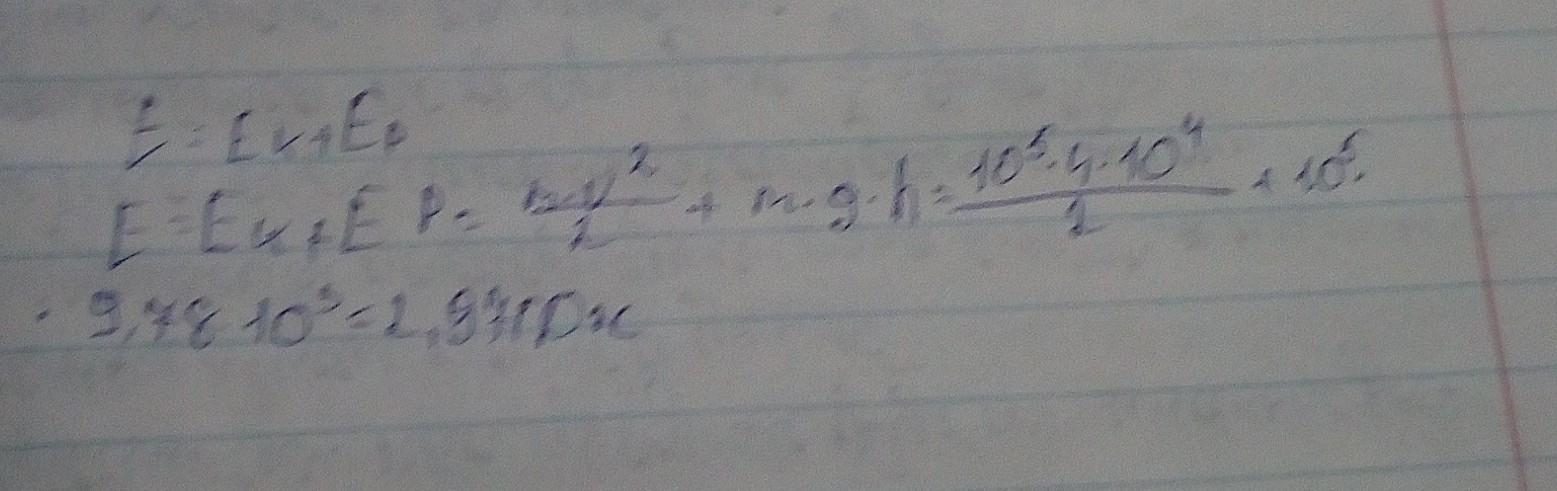 E = Eк + Eр
E = Eк + E р = m·V²/2 + m·g·h = 10⁵·4·10⁴/2 + 10⁵·
· 9,78·10³ = 2,97ГДж